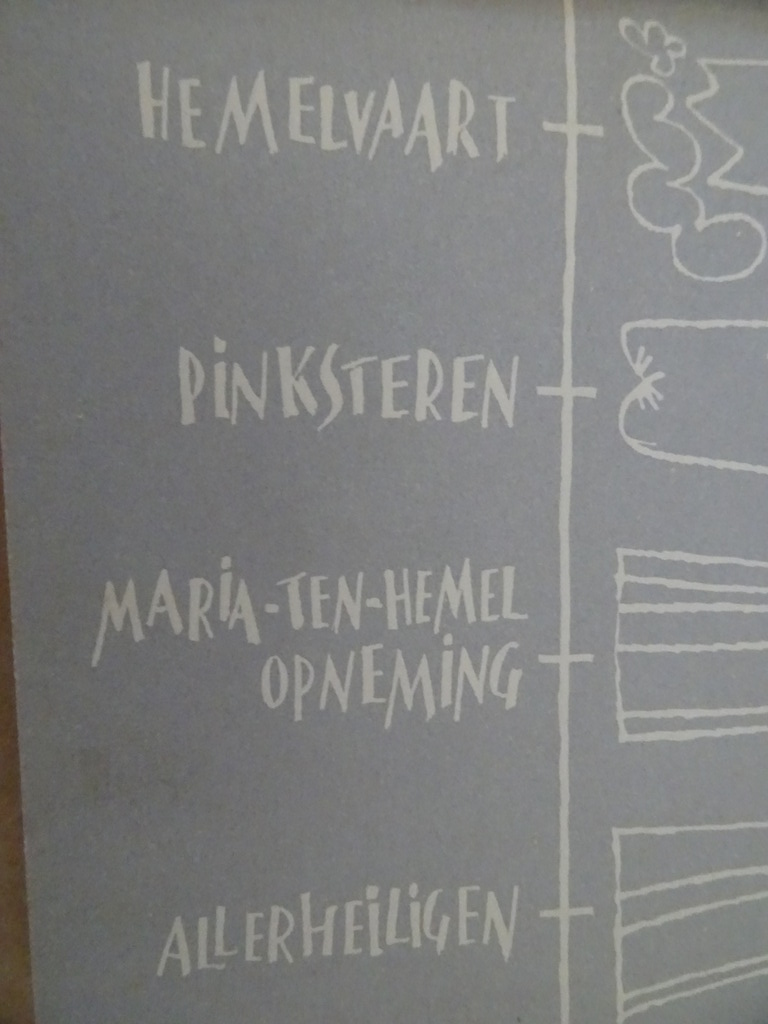 HEMELVAART
PINKSTEREN
MARIA-TEN-HEMEL
OPNEMING
ALLERHEILIGEN